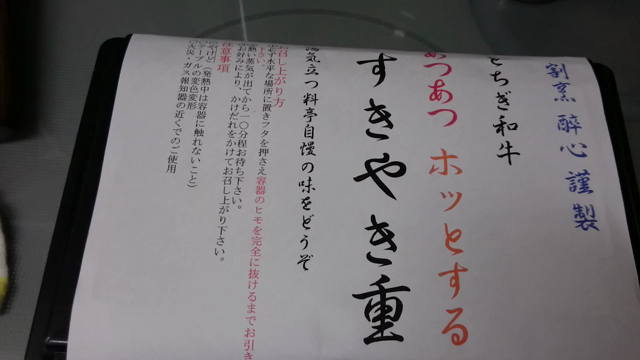 割烹 酔心 謹製
とちぎ和牛
あつあつ ホッとする
すきやき重
湯気立つ料亭自慢の味をどうぞ
お召し上がり方
必ず水平な場所に置きフタを押さえ容器のヒモを完全に抜けるまでお引き
下さい。
熱い蒸気が出てから一〇分程お待ち下さい。
お好みにより、かけだれをかけてお召し上がり下さい。
注意事項
(発熱中は容器に触れないこと)
テーブルの変色変形
火災・ガス報知器の近くでのご使用